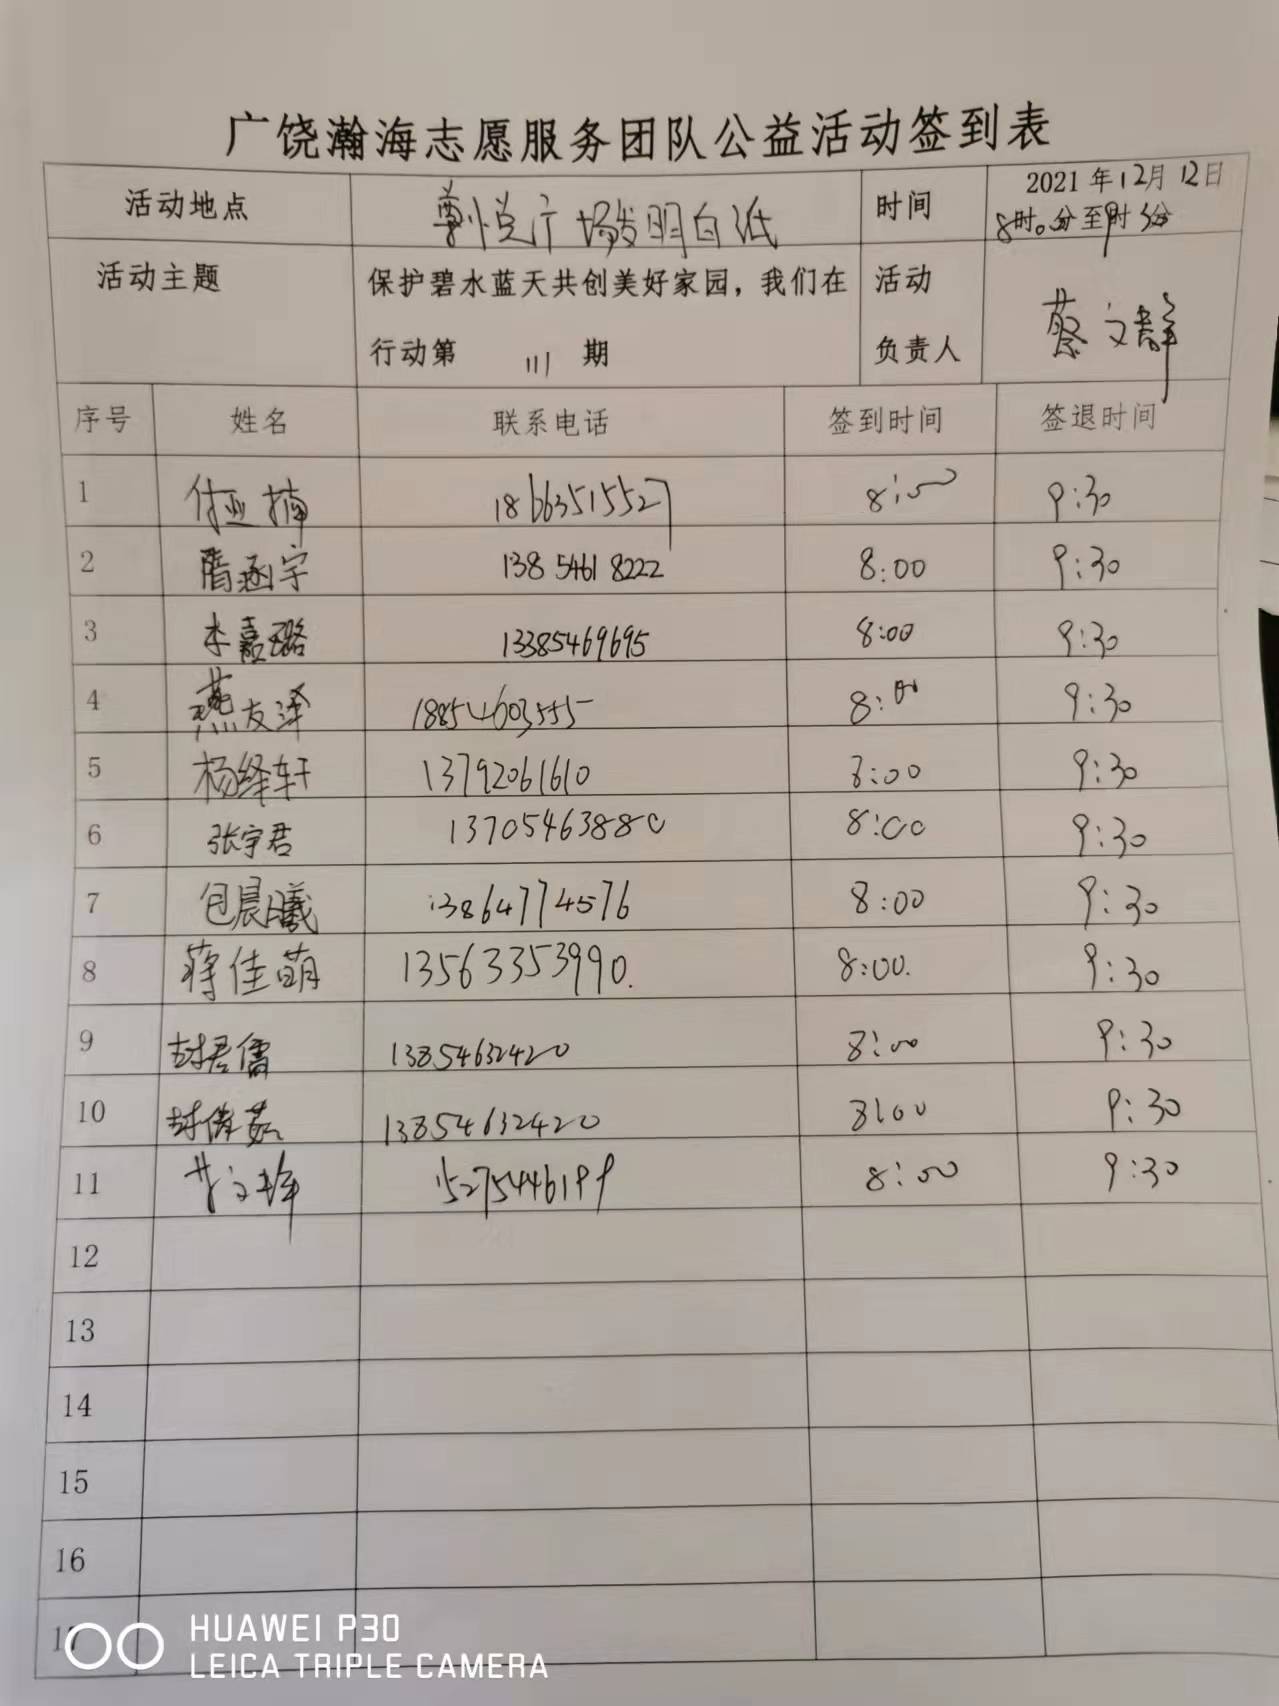 广饶瀚海志愿服务团队公益活动签到表
活动地点 尊悦广场发明白纸 时间 2021年12月12日
8时0分至9时30分
活动主题 保护碧水蓝天共创美好家园，我们在 活动
行动第 111 期 负责人 蔡文群
序号 姓名 联系电话 签到时间 签退时间
1 付亚楠 18663515527 8:00 9:30
2 隋涵宇 13854618222 8:00 9:30
3 李嘉璐 13385469695 8:00 9:30
4 燕友泽 18854603555 8:00 9:30
5 杨绎轩 13792061610 8:00 9:30
6 张宇君 13705463880 8:00 9:30
7 包晨曦 13864774576 8:00 9:30
8 蒋佳萌 13563353990. 8:00. 9:30
9 封君儒 13854632420 8:00 9:30
10 封倩茹 13854632420 8:00 9:30
11 15275446199 8:00 9:30
12
13
14
15
16
17
HUAWEI P30
LEICA TRIPLE CAMERA